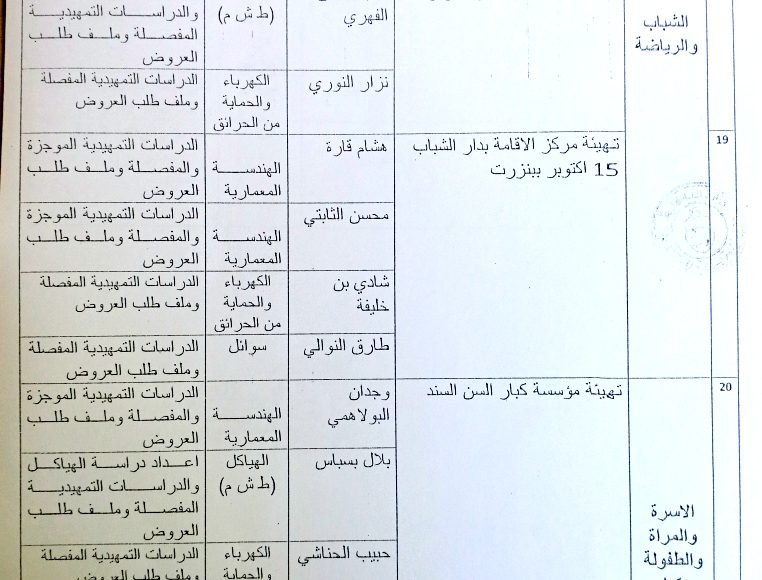 الشباب
والرياضة
الفهري
(ط ش م)
والدراسات التمهيدية
المفصلة وملف طلب
العروض
نزار النوري
الكهرباء
والحماية
من الحرائق
الدراسات التمهيدية المفصلة
وملف طلب العروض
19
تهيئة مركز الاقامة بدار الشباب
15 اكتوبر ببنزرت
هشام قارة
الهندسة
المعمارية
الدراسات التمهيدية الموجزة
والمفصلة وملف طلب
العروض
محسن الثابتي
الهندسة
المعمارية
الدراسات التمهيدية الموجزة
والمفصلة وملف طلب
العروض
شادي بن
خليفة
الكهرباء
والحماية
من الحرائق
الدراسات التمهيدية المفصلة
وملف طلب العروض
طارق النوالي
سوائل
الدراسات التمهيدية المفصلة
وملف طلب العروض
20
الاسرة
والمراة
والطفولة
تهيئة مؤسسة كبار السن السند
وجدان
البولاهمي
الهندسة
المعمارية
الدراسات التمهيدية الموجزة
والمفصلة وملف طلب
العروض
بلال بسباس
الهياكل
(ط ش م)
اعداد دراسة الهياكل
والدراسات التمهيدية
المفصلة وملف طلب
العروض
حبيب الحناشي
الكهرباء
والحماية
الدراسات التمهيدية المفصلة